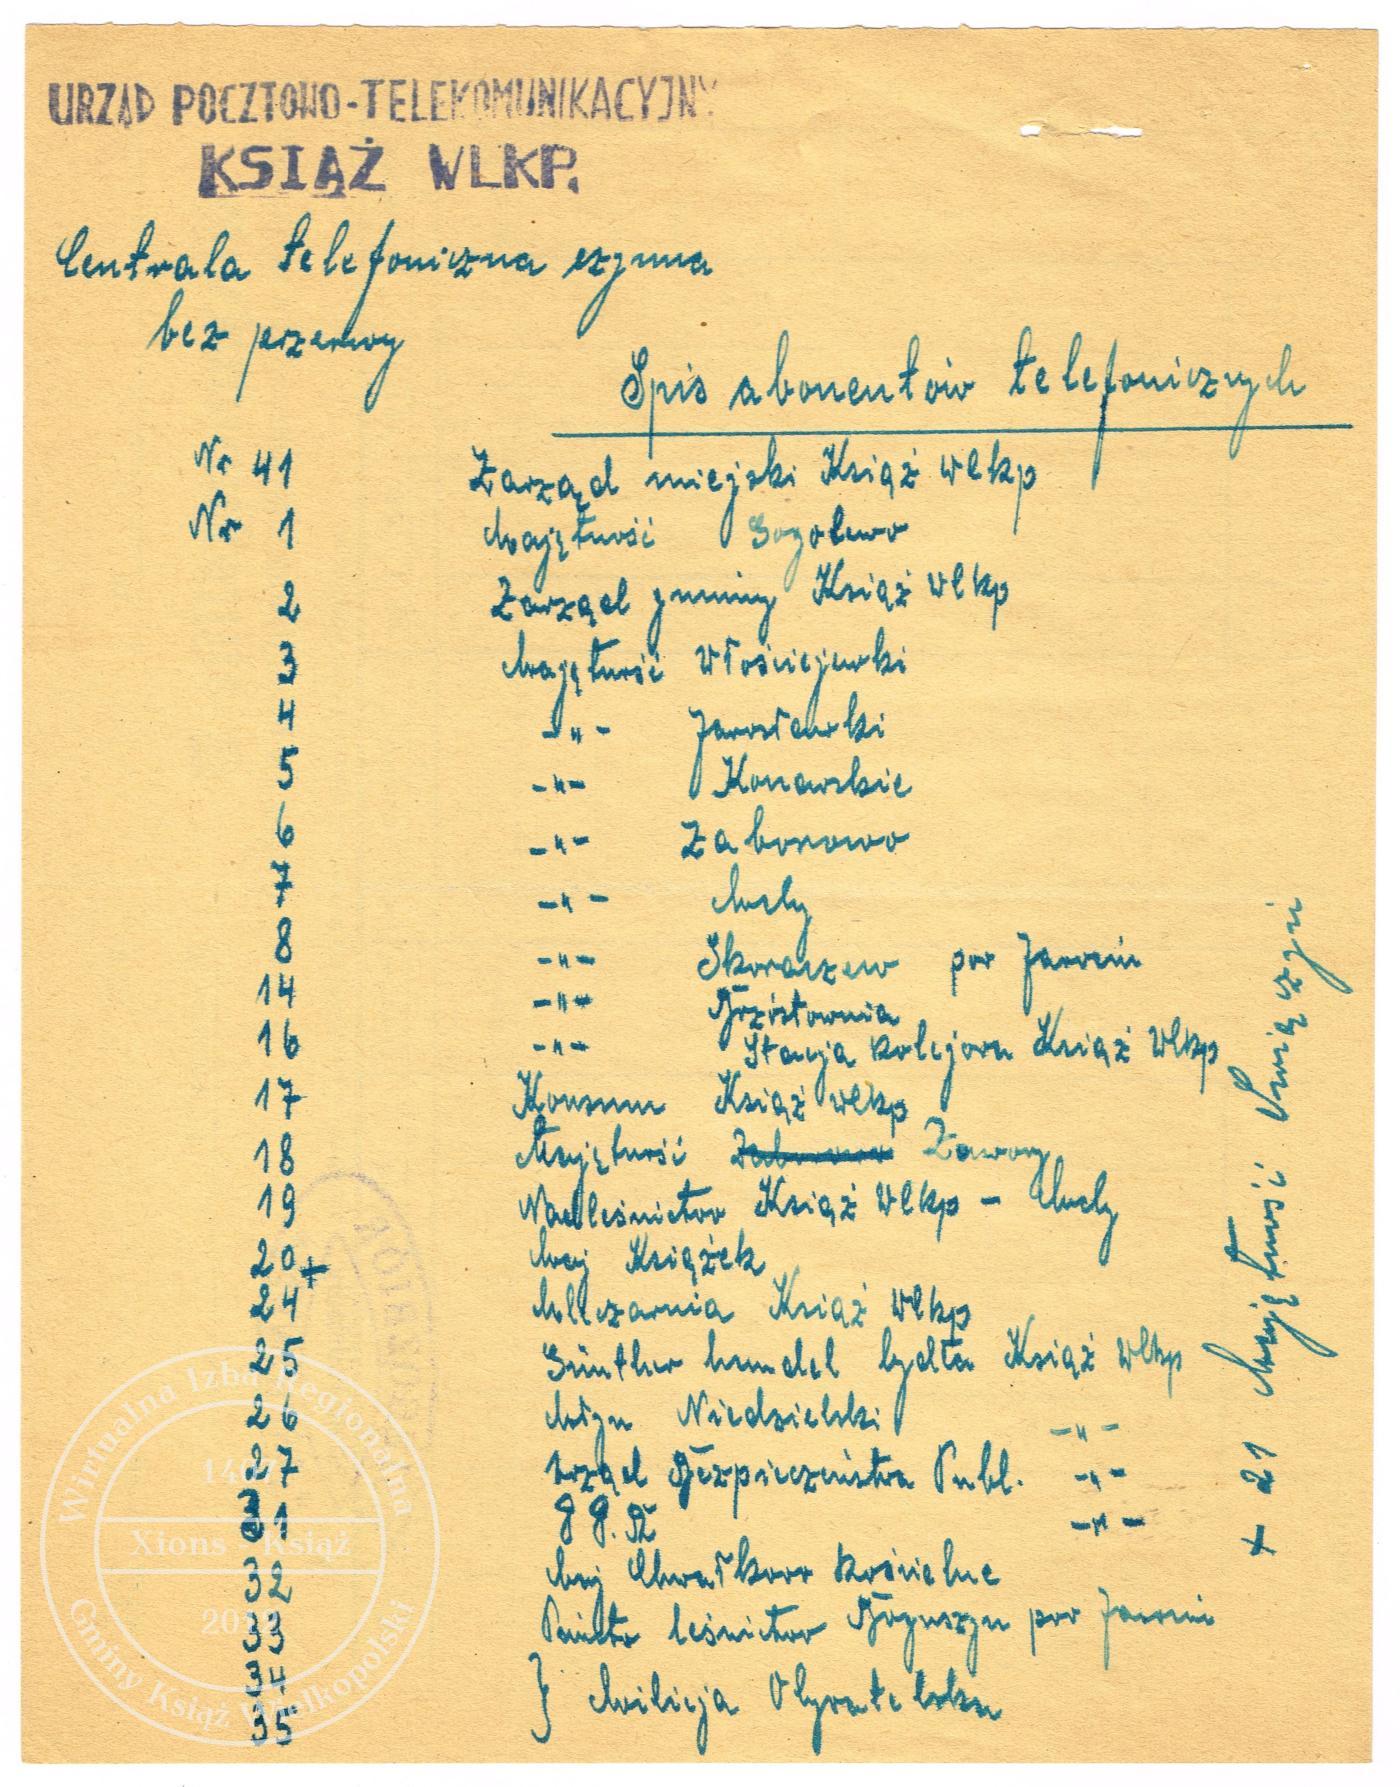 URZĄD POCZTOWO-TELEKOMUNIKACYJNY
KSIĄŻ WLKP.
Centrala telefoniczna czynna
bez przerwy
Spis abonentów telefonicznych
Nr 41 Zarząd miejski Książ Wlkp
Nr 1 Majętność Gogolewo
2 Zarząd gminy Książ Wlkp
3 Majętność Włościejewki
4 -"- Jarosławki
5 -"- Konarskie
6 -"- Zaborowo
7 -"- Mchy
8 -"- Skoraczew pow Jarocin
14 -"- Brzóstownia
16 -"- Stacja kolejowa Książ Wlkp
17 Konsum Książ Wlkp
18 Majętność Zaborowo Zawory
19 Nadleśnictwo Książ Wlkp - Mchy
20 + Maj Książek
24 Mleczarnia Książ Wlkp
25 Günther handel bydła Książ Wlkp
26 Młyn Niedzielski -"-
27 Urząd Bezpieczeństwa Publ. -"-
31 -"-
32 Maj Chwałkowo Kościelne
33 Państw leśnictwo pow Jarocin
34
35 } Milicja Obywatelska
+ 21 Majętność Świączyń
Wirtualna Izba Regionalna
Xions - Książ
Gminy Książ Wielkopolski